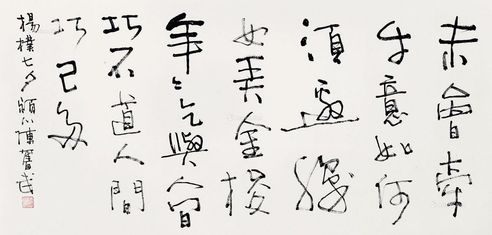 未會牽
牛意如何
須邀織
女弄金梭
年々乞與人间
巧不道人間
巧已多
楊樸七夕 潁川陳奮武